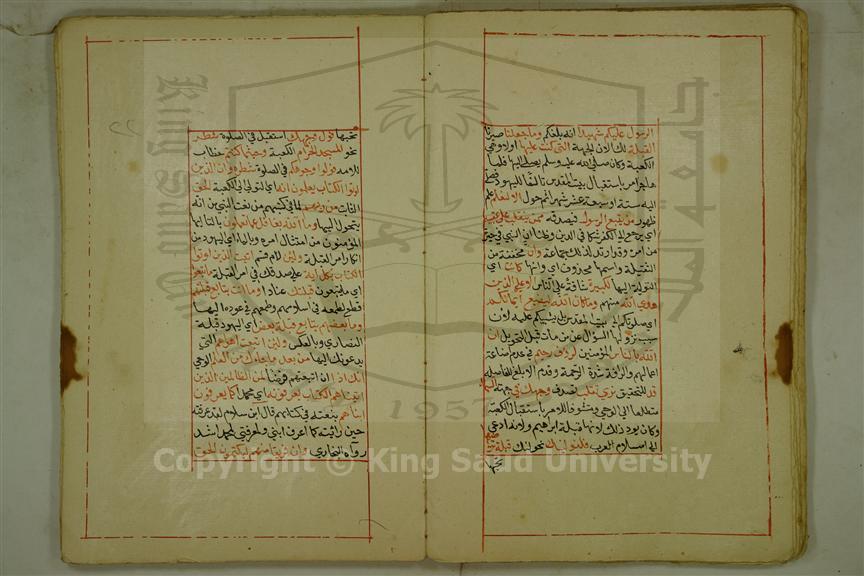 الرسول عليكم شهيدا انه بلغكم وما جعلنا صيرنا
القبلة لك الان الجهة التي كنت عليها اولا وهي
الكعبة وكان صلى الله عليه وسلم يصلي اليها فلما
هاجر امر باستقبال بيت المقدس تالفا لليهود فصلى
اليه ستة او سبعة عشر شهرا ثم حول الا لنعلم علم
ظهور من يتبع الرسول فيصدقه ممن ينقلب على عقبيه
اي يرجع الى الكفر شكا في الدين وظنا ان النبي في حيرة
من امره وقد ارتد لذلك جماعة وان مخففة من
الثقيلة واسمها محذوف اي وانها كانت اي
التولية اليها لكبيرة شاقة على الناس الا على الذين
هدى الله منهم وما كان الله ليضيع ايمانكم
اي صلوتكم الى بيت المقدس بل يثيبكم عليه لان
سبب نزولها السؤال عن من مات قبل التحويل ان
الله بالناس المؤمنين لرؤف رحيم في عدم اضاعة
اعمالهم والرافة شدة الرحمة وقدم الابلغ للفاصلة
قد للتحقيق نرى تقلب تصرف وجهك في جهة السماء
متطلعا الى الوحي ومتشوقا للامر باستقبال الكعبة
وكان يود ذلك لانها قبلة ابراهيم ولانه ادعى
الى اسلام العرب فلنولينك نحولنك قبلة ترضيها
تحبها
تحبها فول وجهك استقبل في الصلوة شطر
نحو المسجد الحرام الكعبة وحيثما كنتم خطاب
للامة فولوا وجوهكم في الصلوة شطره وان الذين
اوتوا الكتاب يعلمون انه اي التولي الى الكعبة الحق
الثابت من ربهم لما في كتبهم من نعت النبي من انه
يتحول اليها وما الله بغافل عما تعملون بالتا ايها
المؤمنون من امتثال امره وباليا اي اليهود من
انكار امر القبلة ولئن لام قسم اتيت الذين اوتوا
الكتاب بكل اية على صدقك في امر القبلة ما تبعوا
اي لا يتبعون قبلتك عنادا وما انت بتابع قبلتهم
قطع لطمعه في اسلامهم وطمعهم في عوده اليها
وما بعضهم بتابع قبلة بعض اي اليهود قبلة
النصارى وبالعكس ولئن اتبعت اهواهم التي
يدعونك اليها من بعد ما جاءك من العلم الوحي
انك اذا ان اتبعتهم فرضا لمن الظالمين الذين
اتيناهم الكتاب يعرفونه اي محمدا كما يعرفون
ابناهم بنعته في كتابهم قال ابن سلام لقد عرفته
حين رايته كما اعرف ابني ومعرفتي لمحمد اشد
رواه البخاري وان فريقا منهم ليكتمون الحق
جامعة الملك سعود
King Saud University
1957
Copyright © King Saud University